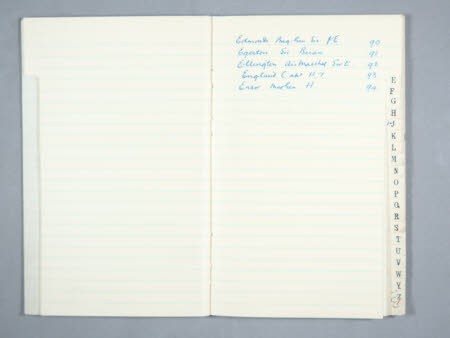 Edmonds Maj-Gen Sir J E 90
Egerton Sir Brian 91
Ellington Air Marshal Sir E 92
England Capt H T 93
Enser H 94
E
F
G
H
I-J
K
L
M
N
O
P
Q
R
S
T
U
V
W
Y
Z